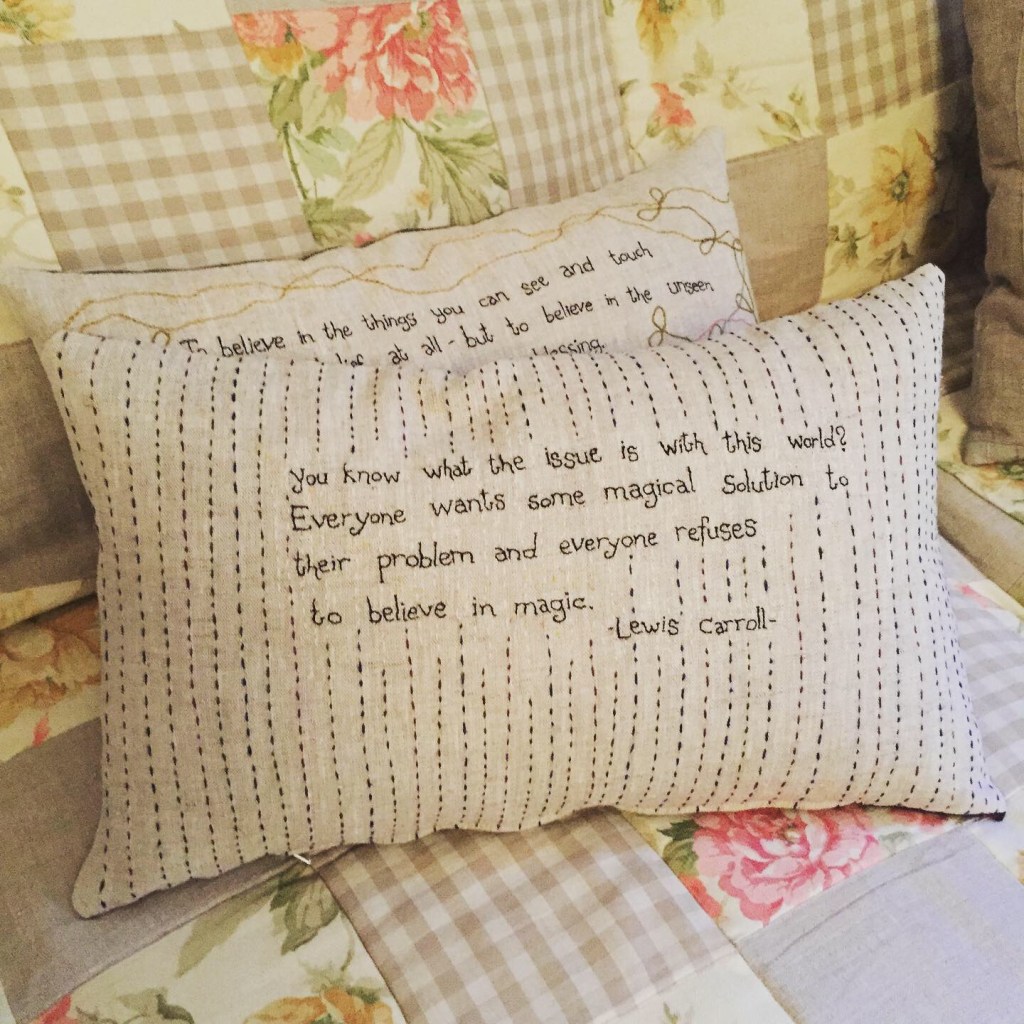 To believe in the things you can see and touch
at all - but to believe in the unseen
blessing.
you know what the issue is with this world?
Everyone wants some magical solution to
their problem and everyone refuses
to believe in magic.
-Lewis Carroll-